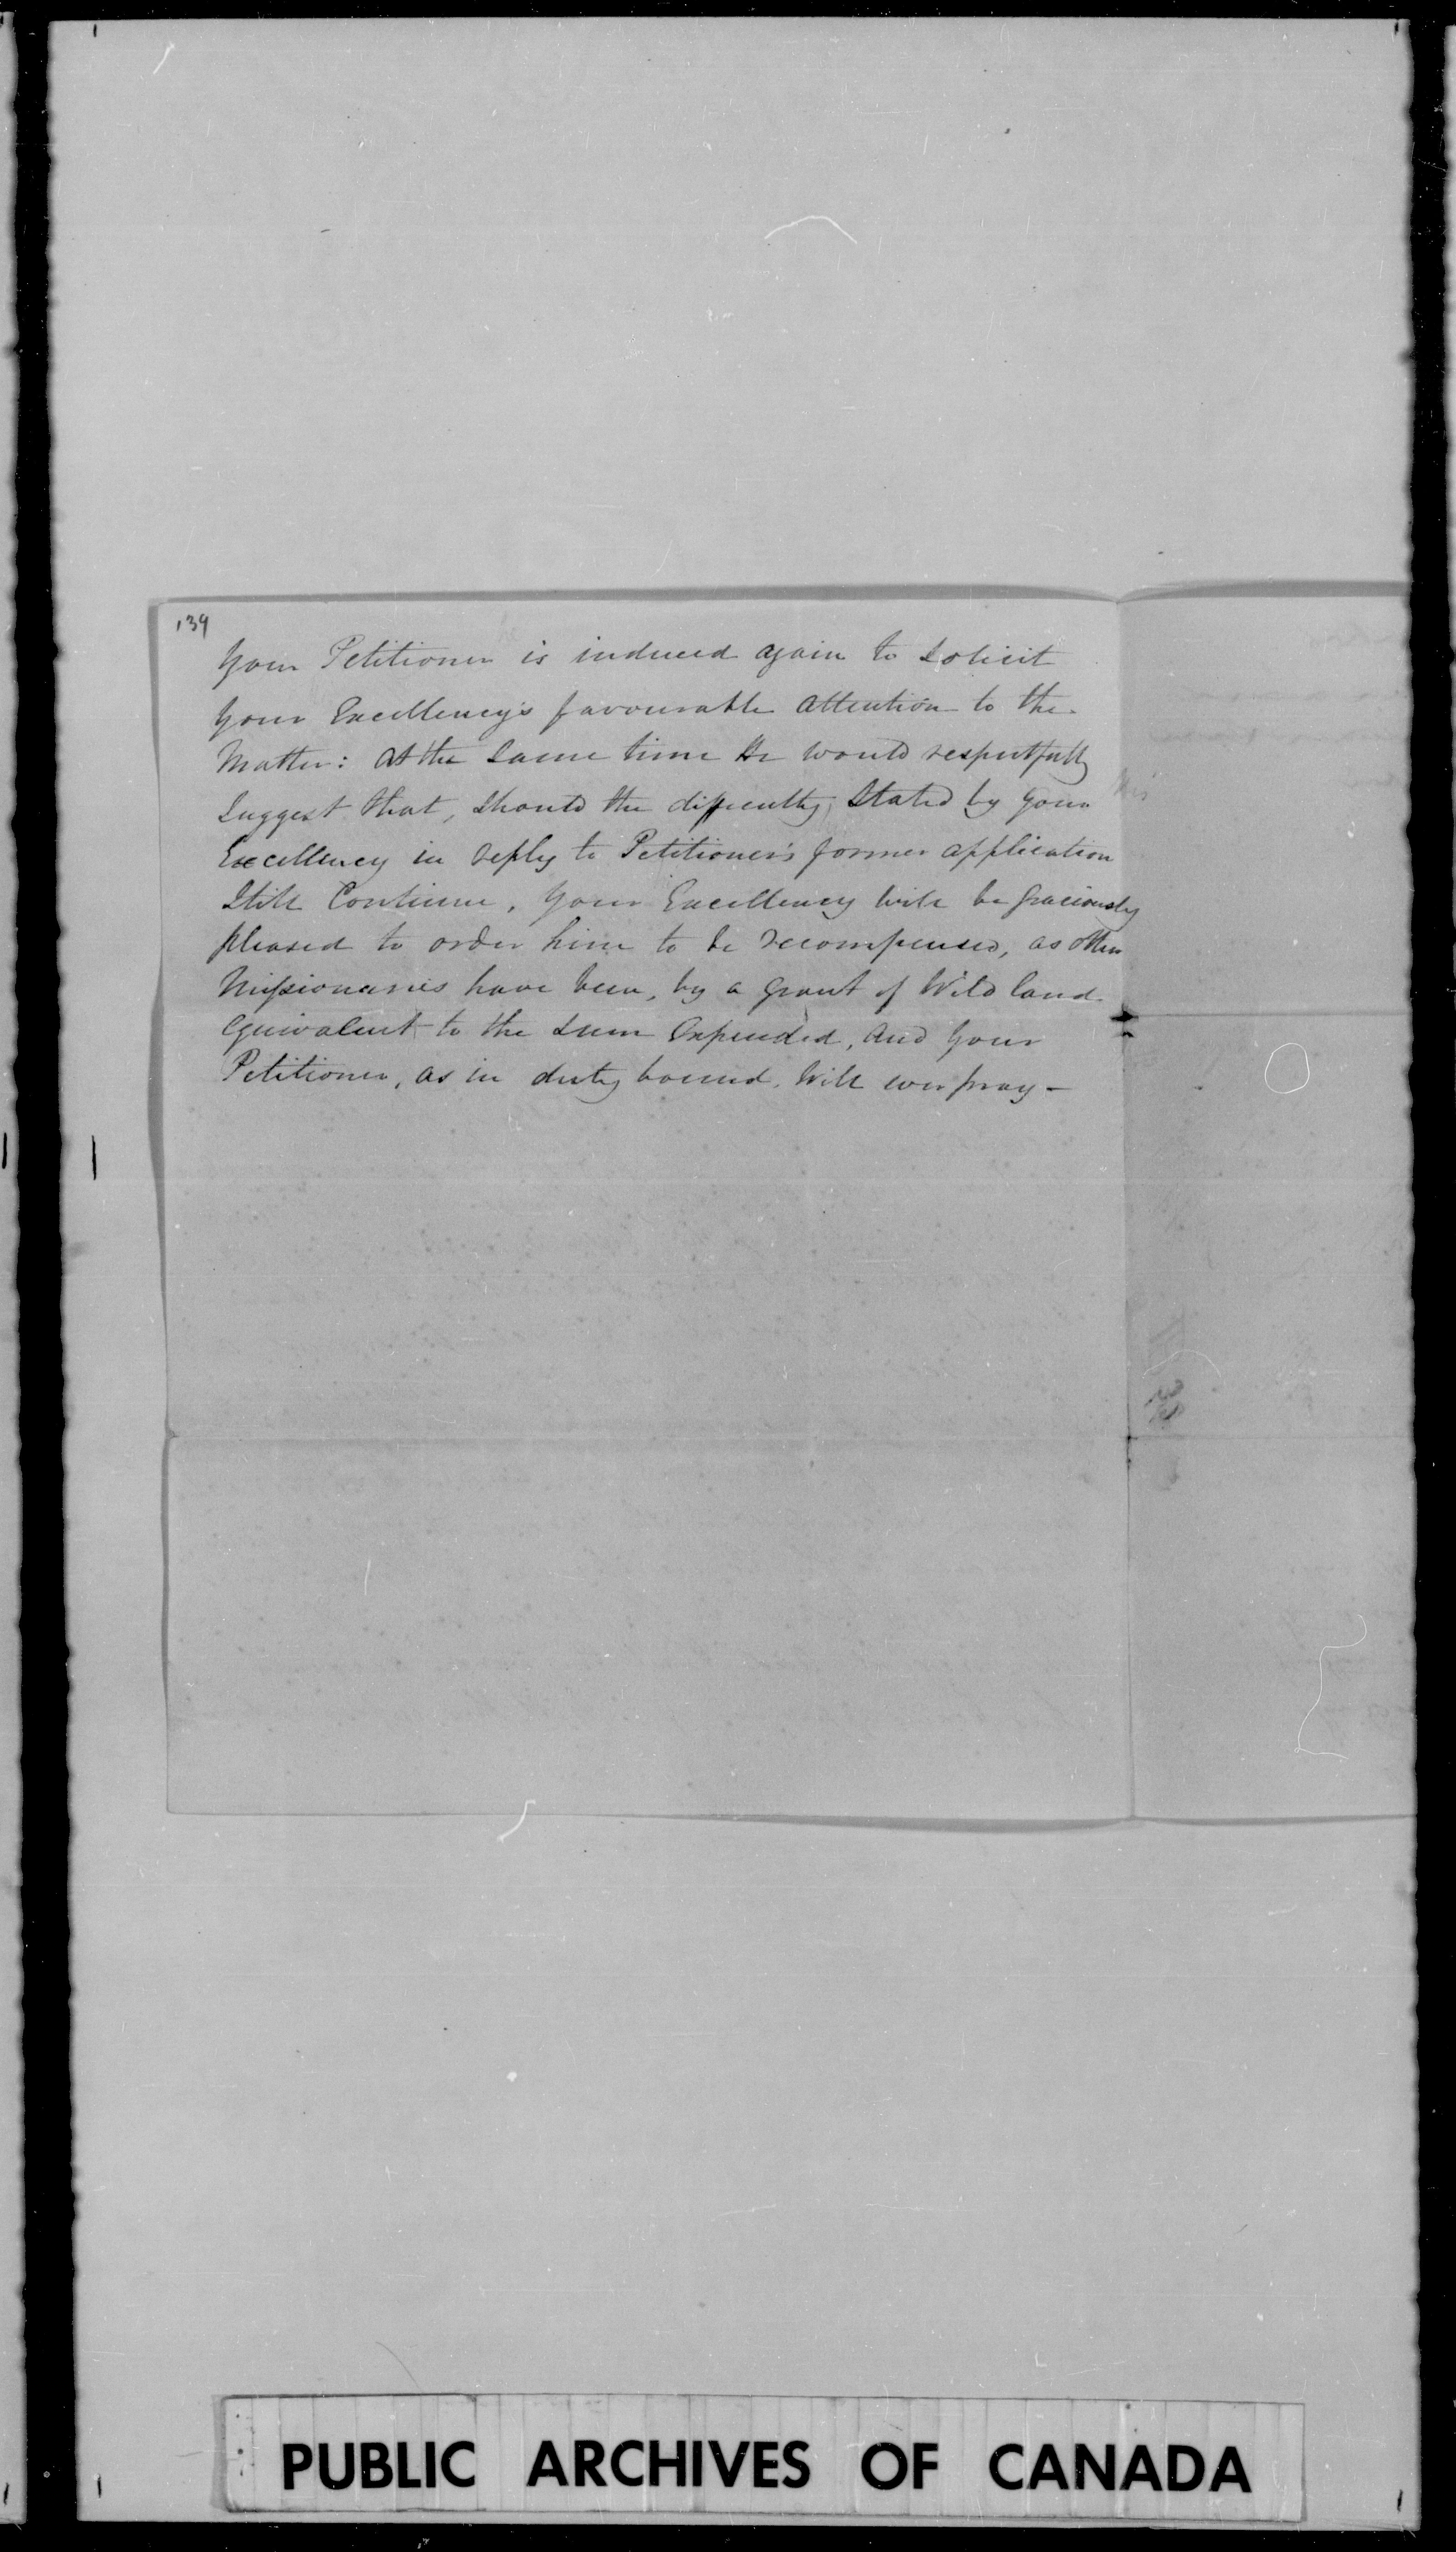 139
Your Petitioner is induced again to Solicit
Your Excellency's favourable attention to the
Matter: at the Same time He would respectfully
Suggest that, Should the difficulty, Stated by Your
Excellency in reply to Petitioner's former application
Still Continue, Your Excellency will be graciously
pleased to order him to be recompensed, as other
Missionaries have been, by a grant of Wild land
equivalent to the Sum Expended, And Your
Petitioner, as in duty bound, Will ever pray—
PUBLIC ARCHIVES OF CANADA